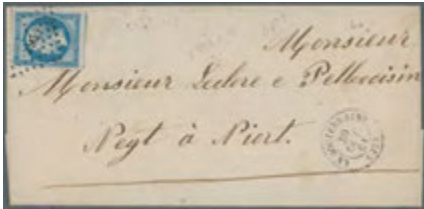 Monsieur
Monsieur Leclerc e Pellevoisin
Negt à Niort.